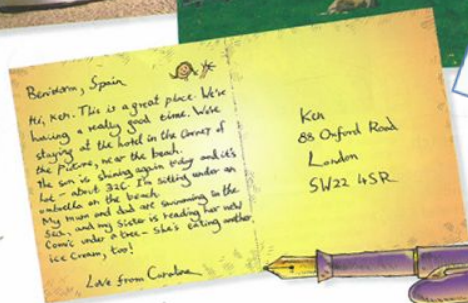 Benidorm, Spain
Hi, Ken. This is a great place. We're
having a really good time. We're
staying at the hotel in the corner of
the picture, near the beach.
The sun is shining again today and it's
hot – about 32C. I'm sitting under an
umbrella on the beach.
My mum and dad are swimming in the
sea, and my sister is reading her new
comic under a tree – she's eating another
ice cream, too!
Love from Caroline
Ken
88 Oxford Road
London
SW22 4SR